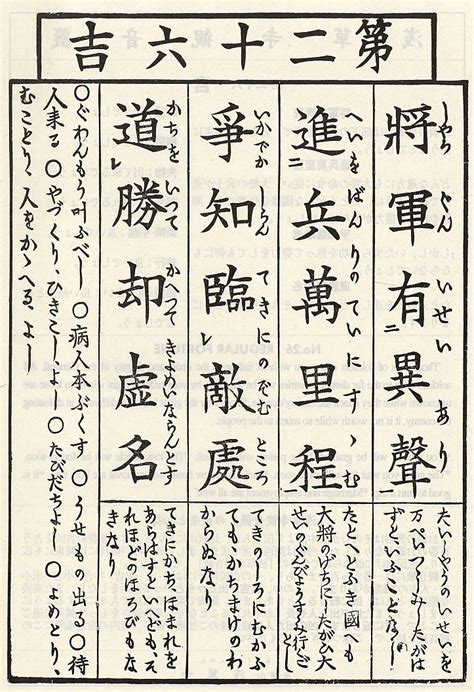 第二十六吉
將軍有異聲
しやうぐん いせい あり
たいしやうのいせいを
万ぺいつゝしみ、たがは
ずといふことなし
進二兵萬里程
へいをばんりのていにすゝむ
大将のげぢに、したがひ大
せいのぐんびようすゝみ行ごとし
爭知臨レ敵處
いかでか しらん てきにのぞむ ところ
てきのしろにむかふ
てもかちまけのわ
かぬなり
道レ勝却虚名
かちを いつて かへつて
てきにかちほまれを
あらはすといへども、そ
れほどのほろびもな
きなり
〇ぐわんもう叶ふべし 〇病人本ぶくす 〇うせもの出る 〇待
人来る 〇やづくり、ひきこし、よし 〇たびだちよし 〇よめとり、
むことり、人をかゝへる、よし